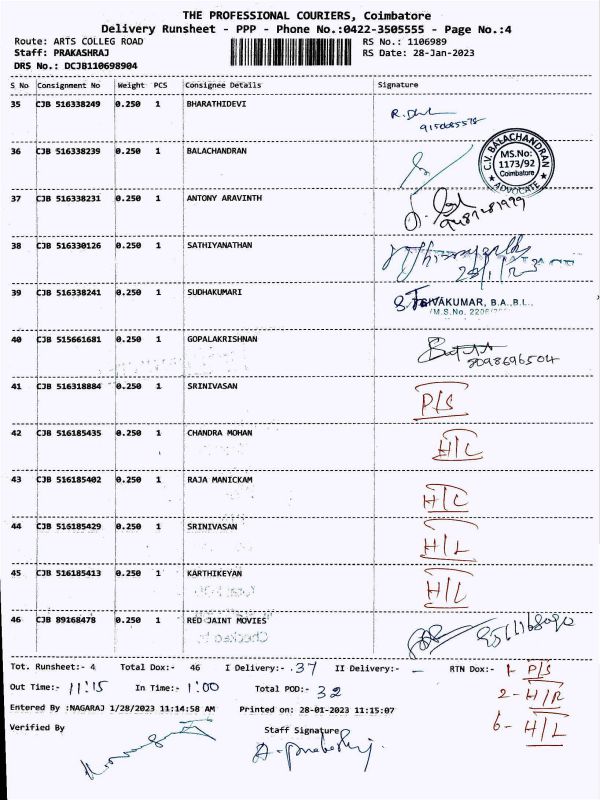 THE PROFESSIONAL COURIERS, Coimbatore
Delivery Runsheet - PPP - Phone No.:0422-3505555 - Page No.:4
Route: ARTS COLLEG ROAD RS No.: 1106989
Staff: PRAKASHRAJ RS Date: 28-Jan-2023
DRS No.: DCJB110698904
S No Consignment No Weight PCS Consignee Details Signature
35 CJB 516338249 0.250 1 BHARATHIDEVI
36 CJB 516338239 0.250 1 BALACHANDRAN
C.V. BALACHANDRAN
MS.No:
1173/92
Coimbatore
ADVOCATE
37 CJB 516338231 0.250 1 ANTONY ARAVINTH
38 CJB 516330126 0.250 1 SATHIYANATHAN
39 CJB 516338241 0.250 1 SUDHAKUMARI
SIVAKUMAR, B.A.,B.L.,
40 CJB 515661681 0.250 1 GOPALAKRISHNAN
8098696504
41 CJB 516318884 0.250 1 SRINIVASAN P/S
42 CJB 516185435 0.250 1 CHANDRA MOHAN H/L
43 CJB 516185402 0.250 1 RAJA MANICKAM H/L
44 CJB 516185429 0.250 1 SRINIVASAN H/L
45 CJB 516185413 0.250 1 KARTHIKEYAN H/L
46 CJB 89168478 0.250 1 RED JAINT MOVIES
Tot. Runsheet:- 4 Total Dox:- 46 I Delivery:- 37 II Delivery:- - RTN Dox:- 1- P/S
Out Time:- 11:15 In Time:- 1:00 Total POD:- 32 2- H/R
Entered By :NAGARAJ 1/28/2023 11:14:58 AM Printed on: 28-01-2023 11:15:07
6- H/L
Verified By Staff Signature